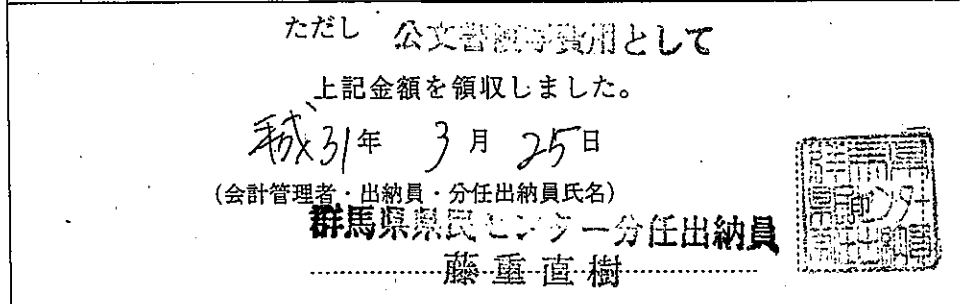 ただし 公文書写等費用として
上記金額を領収しました。
平成31年 3月 25日
(会計管理者・出納員・分任出納員氏名)
群馬県県民センター分任出納員
藤重直樹